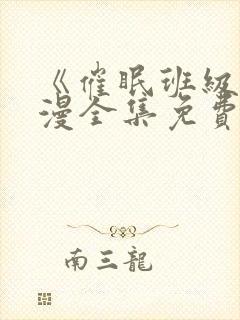 《催眠班級
漫全集免費
南三龍